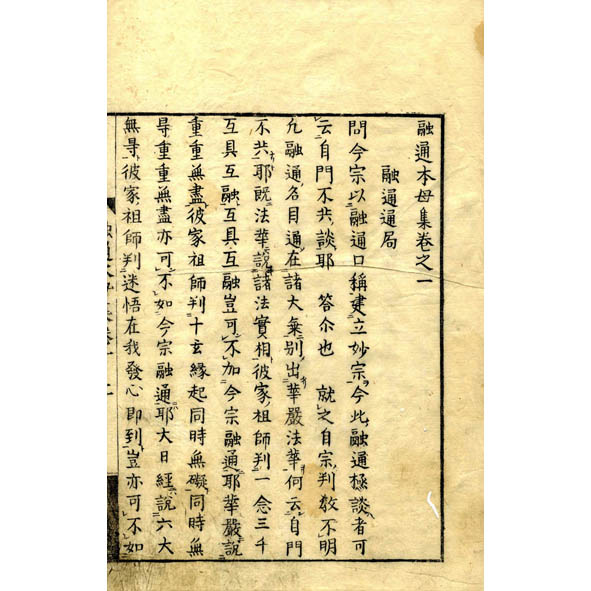 融通本母集卷之一
融通通局
問今宗以融通口稱建立妙宗今此融通極談者可
云自門不共談耶　答尒也　就之自宗判敎不明
凢融通名目通在諸大乗別出華嚴法華何云自門
不共耶既法華說諸法實相彼家祖師判一念三千
互具互融互具互融豈可不加今宗融通耶華嚴說
重重無盡彼家祖師判十玄緣起同時無礙同時無
㝵重重無盡亦可不如今宗融通耶大日經說六大
無㝵彼家祖師判迷悟在我發心即到豈亦可不如